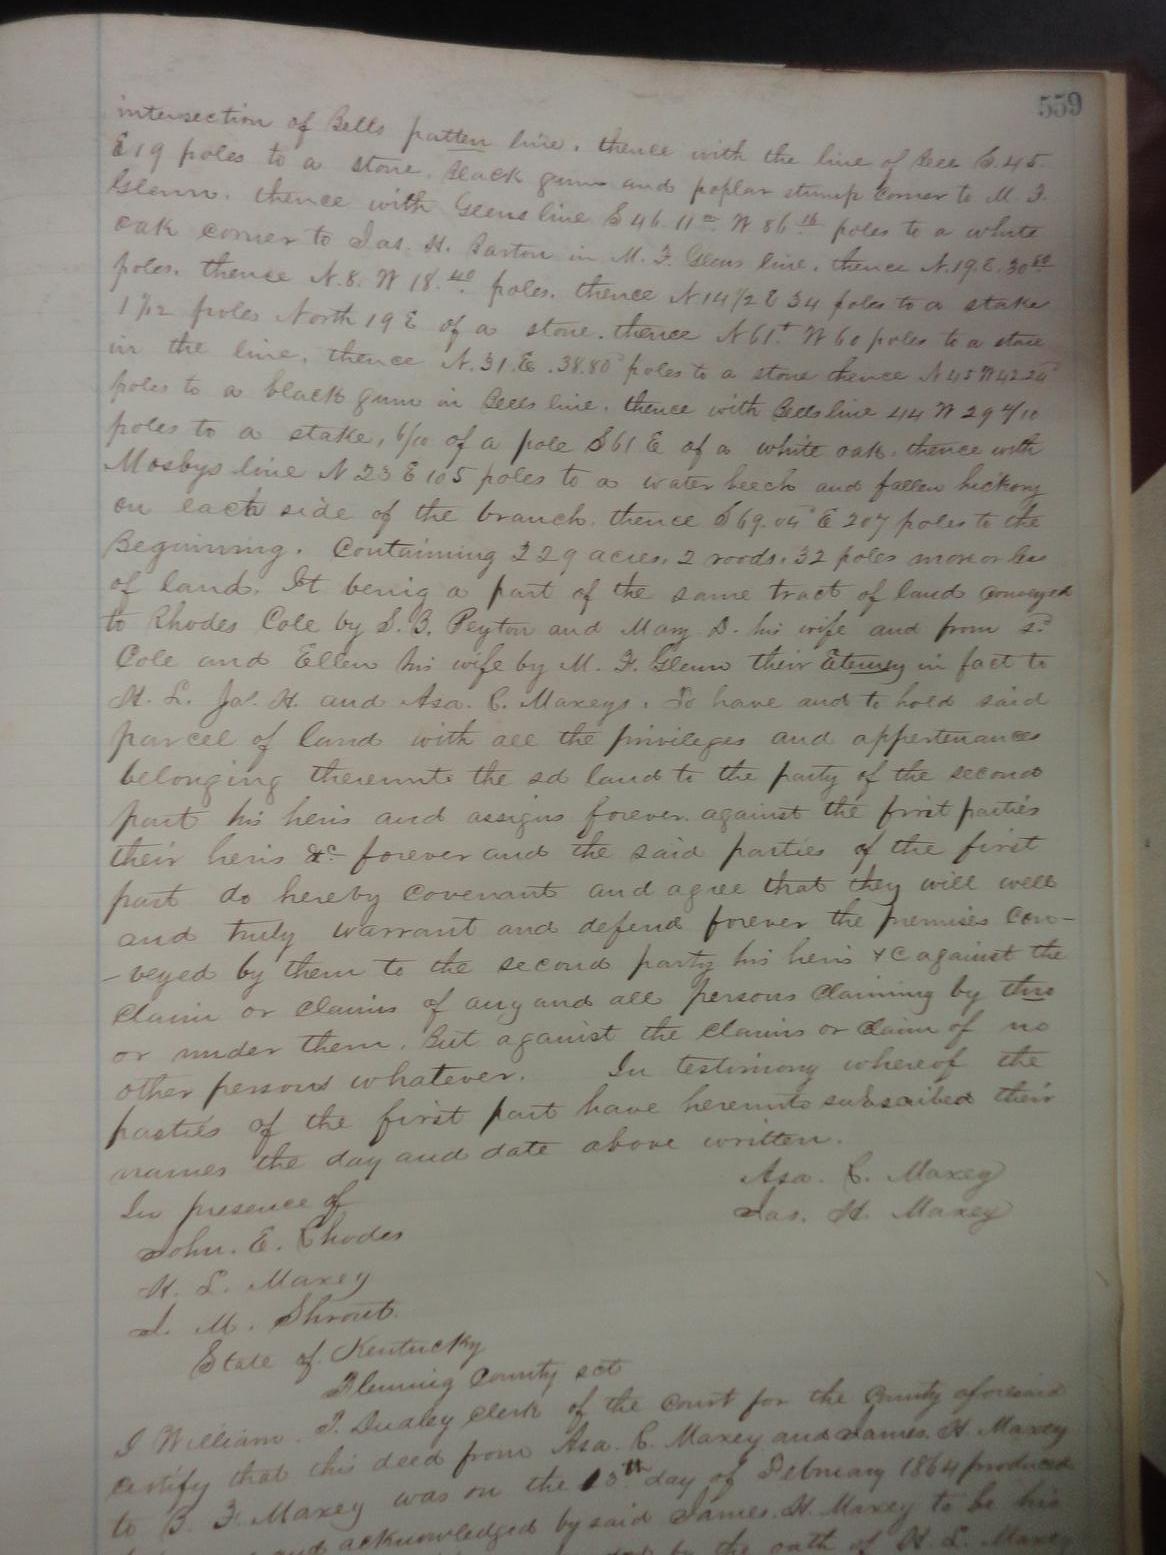 559
intersection of Bells patten line. thence with the line of Bell S. 45
E 19 poles to a stone. Black gum and poplar stump corner to M. F.
Glenn. thence with Glens line S 46. 11 W 86 poles to a white
oak corner to Jas. H. Barton in M. F. Glens line. thence N. 19. E. 30
poles. thence N. 8. W 18. 40 poles. thence N 14 1/2 E 34 poles to a stake
1 7/12 poles North 19 E of a stone. thence N 61 W 60 poles to a stone
in the line. thence N. 31. E. 38.80 poles to a stone thence N 45 W 42
poles to a black gum in Bells line. thence with Bells line 44 W 29 4/10
poles to a stake, 6/10 of a pole S 61 E of a white oak. thence with
Mosbys line N 23 E 105 poles to a water beech and fallen hickory
on each side of the branch. thence S 69. 04 E 207 poles to the
Beginning. Containing 229 acres. 2 roods. 32 poles more or less
of land. It being a part of the same tract of land conveyed
to Rhodes Cole by S. B. Peyton and Mary D. his wife and from sd
Cole and Ellen his wife by M. F. Glenn their in fact to
H. L. Jas. H. and Asa. C. Maxeys. To have and to hold said
parcel of land with all the privileges and appertenances
belonging thereunto the sd land to the party of the second
part his heris and assigns forever. against the first parties
their heris &c forever and the said parties of the first
part do hereby covenant and agree that they will well
and truly warrant and defend forever the premises con-
-veyed by them to the second party his heris & C against the
claim or claims of any and all persons claiming by thro
or under them. But against the claims or claim of no
other persons whatever. In testimony whereof the
parties of the first part have hereunto subscribed their
names the day and date above written.
In presence of
Asa. C. Maxey
John. E. Rhodes
Jas. H. Maxey
H. L. Maxey
J. M. Shrout.
State of Kentucky
Fleming County sct
I William. T. Dudley clerk of the court for the county aforesaid
certify that this deed from Asa. C. Maxey and James. H. Maxey
to B. F. Maxey was on the 13th day of February 1864 produced
and acknowledged by said James. H. Maxey to be his
by the oath of H. L. Maxey